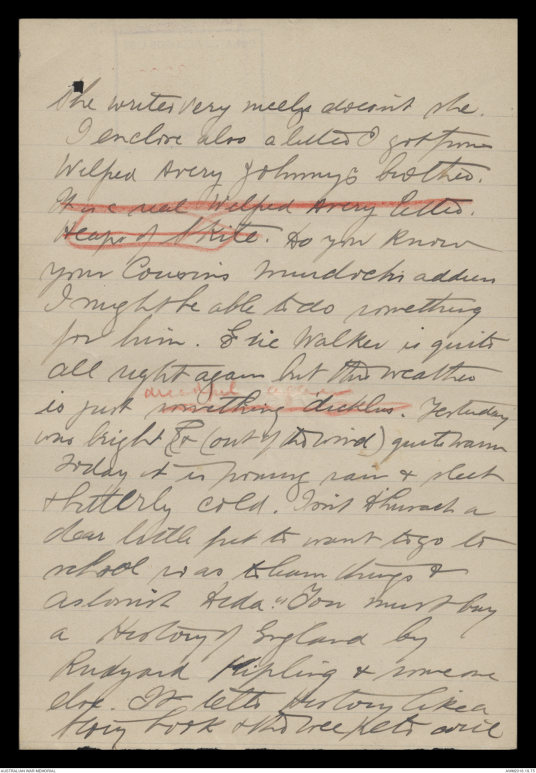 She writes very nicely doesn't she.
I enclose also a letter I got from
Wilfred Avery Johnny's brother.
It is a real Wilfred Avery letter.
Heaps of Skite. Do you know
your Cousins Murdochs address
I might be able to do something
for him. Elsie Walker is quite
all right again but the weather
dreadful again
is just something . Yesterday
was bright & (out of the wind) quite warm
Today it is pouring rain & sleet
& bitterly cold. Isn't a
dear little pet to want to go to
school so as to learn things &
astonish Dida. "You must buy
a History of England by
Rudyard Kipling & someone
else. It tells History like a
Story book & the wee pets will
AUSTRALIAN WAR MEMORIAL